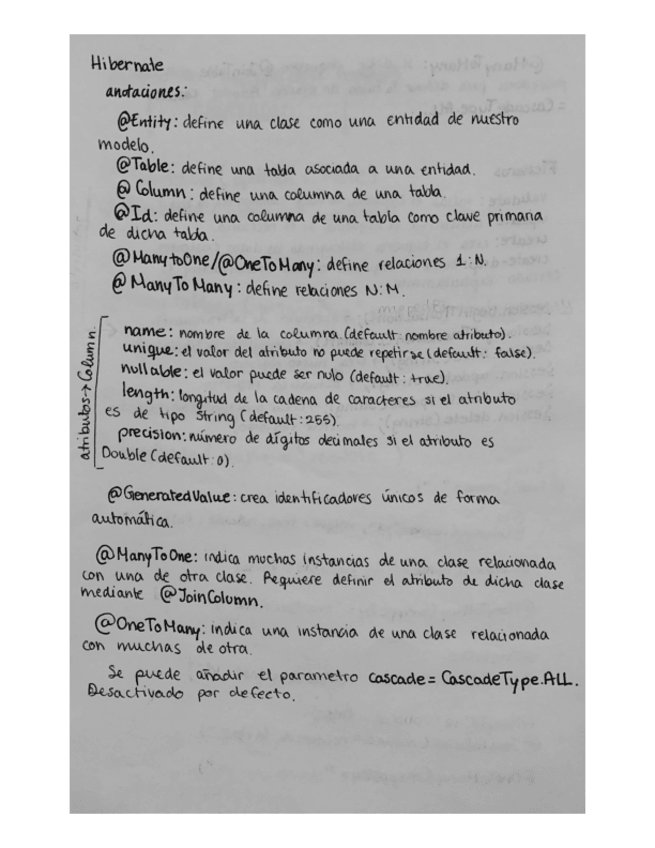 Hibernate
anotaciones:
@Entity: define una clase como una entidad de nuestro
modelo.
@Table: define una tabla asociada a una entidad.
@Column: define una columna de una tabla.
@Id: define una columna de una tabla como clave primaria
de dicha tabla.
@ManytoOne/@OneToMany: define relaciones 1:N.
@ManyToMany: define relaciones N:M.
atributos→Column.
name: nombre de la columna (default: nombre atributo).
unique: el valor del atributo no puede repetirse (default: false).
nullable: el valor puede ser nulo (default: true).
length: longitud de la cadena de caracteres si el atributo
es de tipo String (default: 255).
precision: número de dígitos decimales si el atributo es
Double (default: 0).
@GeneratedValue: crea identificadores únicos de forma
automática.
@ManyToOne: indica muchas instancias de una clase relacionada
con una de otra clase. Requiere definir el atributo de dicha clase
mediante @JoinColumn.
@OneToMany: indica una instancia de una clase relacionada
con muchas de otra.
Se puede añadir el parametro cascade = CascadeType.ALL.
Desactivado por defecto.